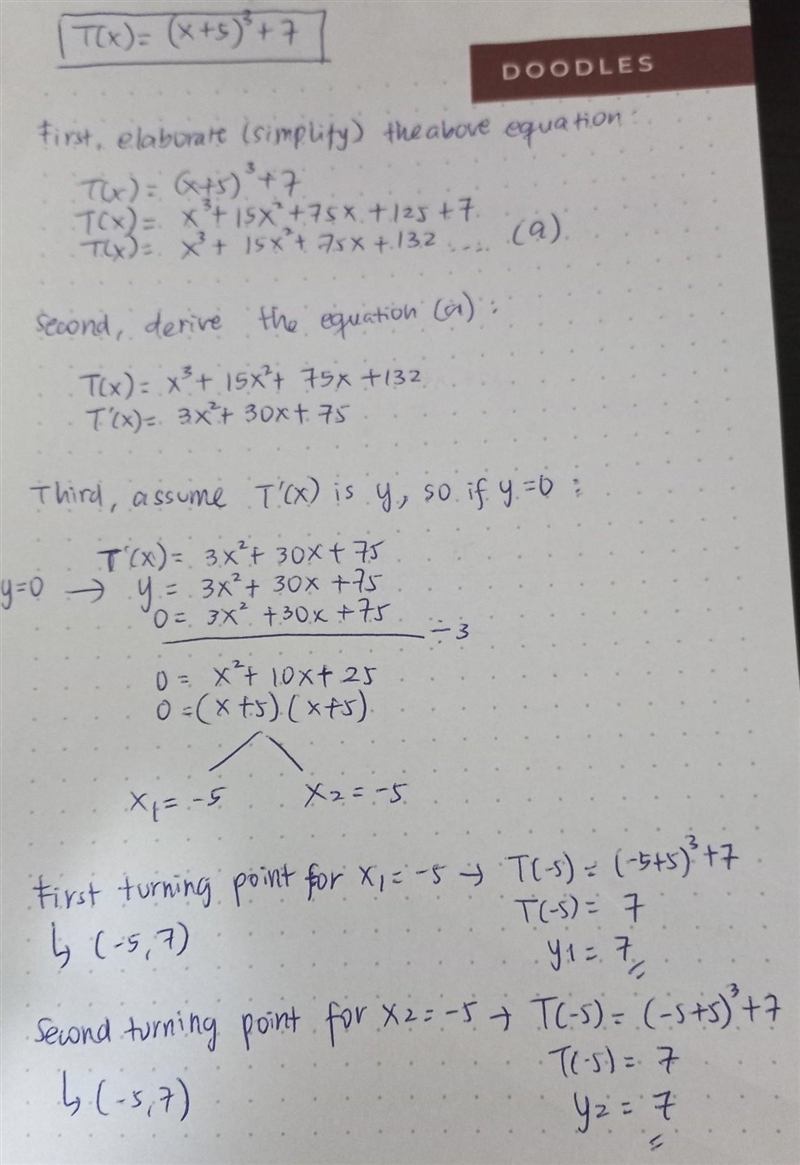 T(x) = (x+5)³ + 7
DOODLES
First, elaborate (simplify) the above equation:
T(x) = (x+5)³ + 7
T(x) = x³ + 15x² + 75x + 125 + 7
T(x) = x³ + 15x² + 75x + 132 .... (a)
Second, derive the equation (a) :
T(x) = x³ + 15x² + 75x + 132
T'(x) = 3x² + 30x + 75
Third, assume T'(x) is y, so if y=0 :
T'(x) = 3x² + 30x + 75
y=0 → y = 3x² + 30x + 75
0 = 3x² + 30x + 75
÷ 3
0 = x² + 10x + 25
0 = (x+5) (x+5)
x₁ = -5 x2 = -5
First turning point for x₁ = -5 → T(-5) = (-5+5)³ + 7
T(-5) = 7
↳ (-5, 7) y1 = 7
Second turning point for x2 = -5 → T(-5) = (-5+5)³ + 7
T(-5) = 7
↳ (-5, 7) y2 = 7